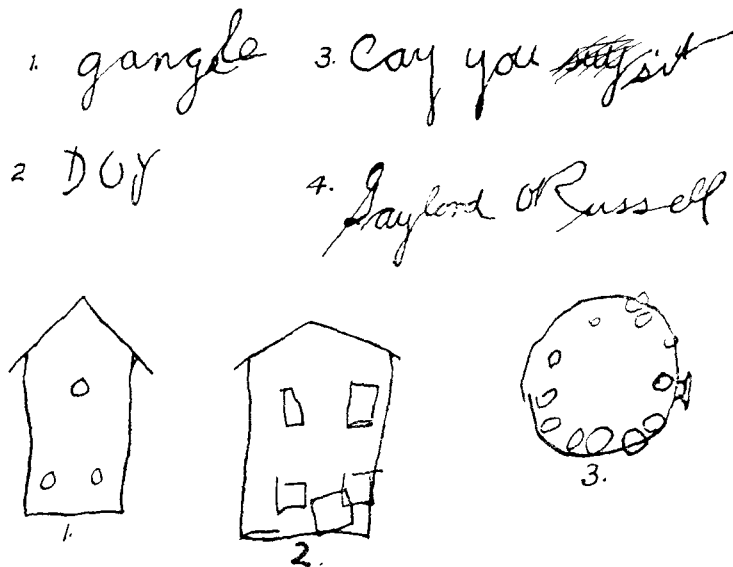 1. gangle
3. Cay you sit
2 DOY
4. Gaylond ORussell
1.
2.
3.